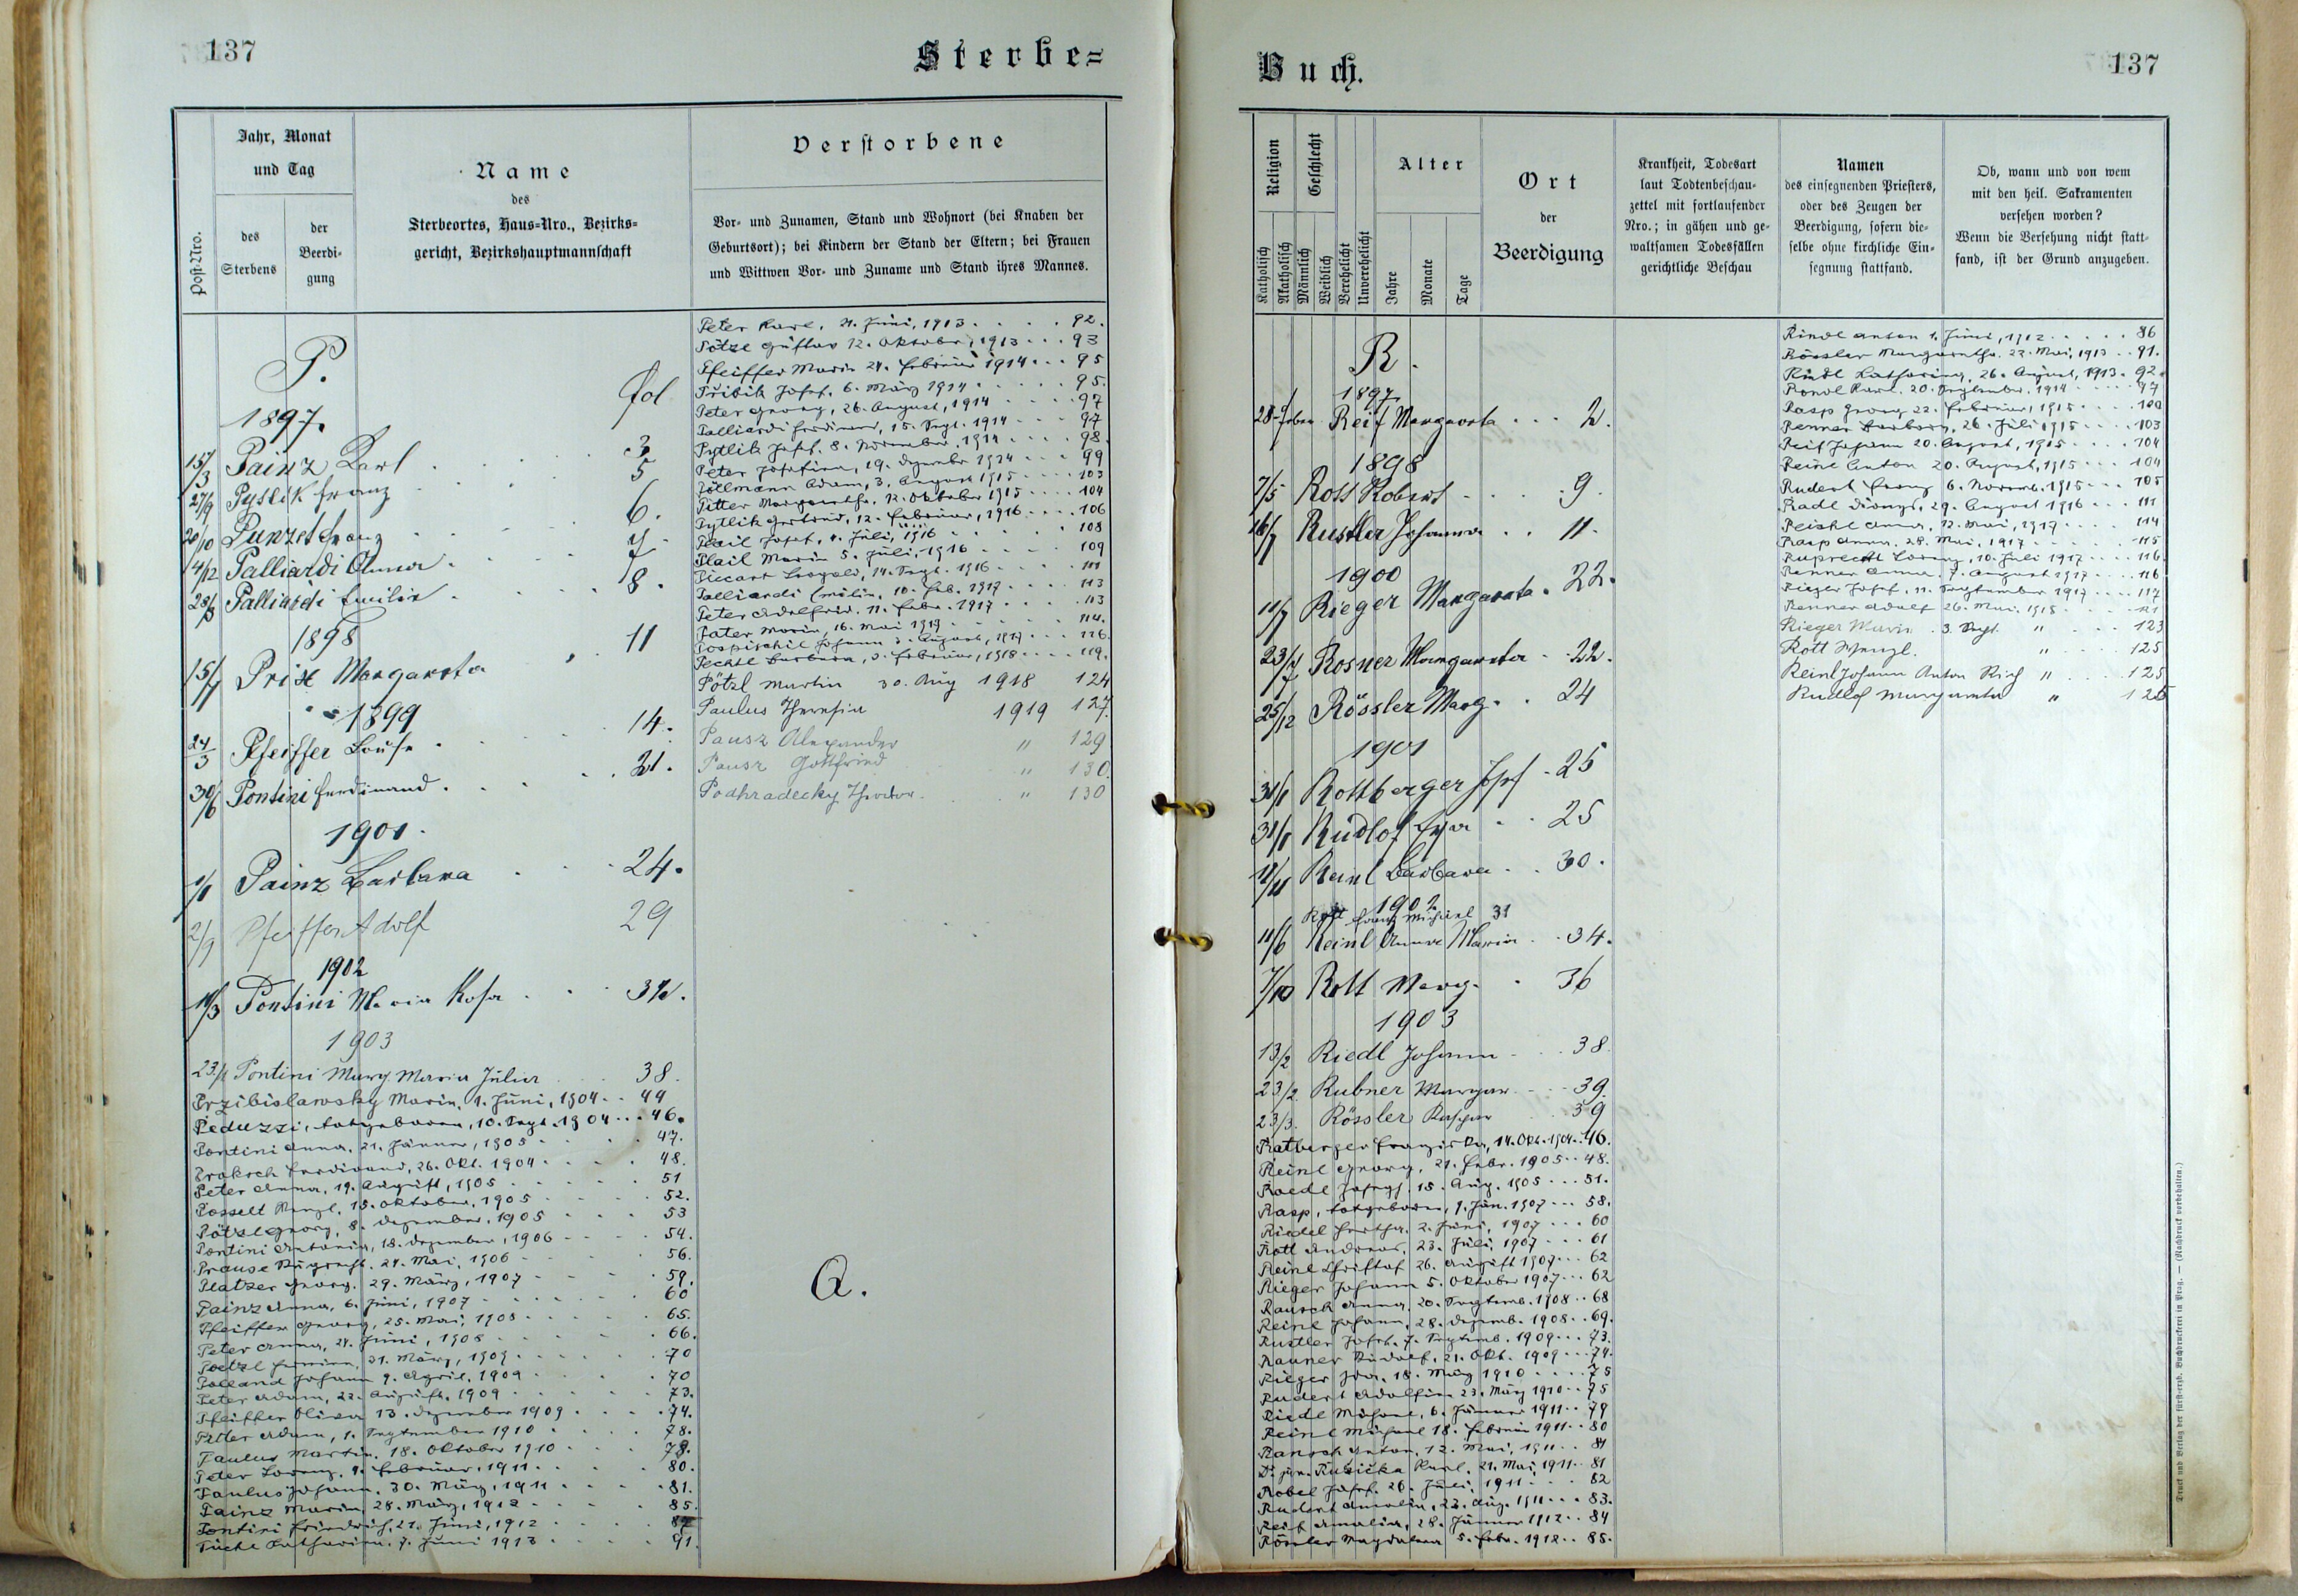 137
Sterbe=
Post-Nro.
Jahr, Monat
und Tag
des
Sterbens
der
Beerdi-
gung
Name
des
Sterbeortes, Haus-Nro., Bezirks-
gericht, Bezirkshauptmannschaft
Verstorbene
Vor- und Zunamen, Stand und Wohnort (bei Knaben der
Geburtsort); bei Kindern der Stand der Eltern; bei Frauen
und Wittwen Vor- und Zuname und Stand ihres Mannes.
P.
fol
1897.
15/3 Painz Karl 3
27/9 Franz 5
20/10 Punzet Franz 6.
4/12 Palliardi Anna 7
Palliardi Emilie 8.
1898
Margareta 11
1899
24/3 Pfeiffer Louise 14.
30/6 Pontini Ferdinand 21.
1901.
1/1 Painz Barbara 24.
2/9 Pfeiffer Adolf 29
1902
Pontini Maria Rosa 32.
1903
Pontini Marg. Maria Julia 38.
Przibislawsky Maria, 1. Juni, 1904 44
Peduzzi, totgeboren, 10. Sept. 1904 46.
Pontini Anna, 21. Jänner, 1905 47.
Proksch Ferdinand, 26. Okt. 1904 48.
Peter Anna, 19. August, 1905 51
Posselt Wenzl, 15. Oktober, 1905 52.
Pötzl Georg, 8. Dezember, 1905 53
Pontini Antonia, 18. Dezember, 1906 54.
Prause 24. Mai, 1906 56.
Platzer Georg, 29. März, 1907 59.
Painz Anna, 6. Juni, 1907 60
Pfeiffer Georg, 25. Mai, 1908 65.
Peter Anna, 24. Juni, 1908 66.
Poetzl 31. März, 1909 70
Polland Johann 9. April, 1909 70
Peter Adam, 22. August, 1909 73.
Pfeiffer Olivia 13. Dezember 1909 74.
Pitter Adam, 1. September 1910 78.
Paulus Martin, 18. Oktober 1910 78.
Peter Lorenz, 9. Februar, 1911 80.
Paulus Johann, 30. März, 1911 81.
Painz Maria, 28. März, 1912 85.
Pontini Friedrich, 21. Juni, 1912 87
Katharina, 7. Juni 1913 91.
Peter Karl, 21. Juni, 1913 92.
Pötzl Gustav 12. Oktober, 1913 93
Pfeiffer Maria 24. Februar 1914 95
Pribik Josef, 6. März 1914 95.
Peter Georg, 26. August, 1914 97
Palliardi Ferdinand, 15. Sept. 1914 97
Pytlik Josef, 8. November, 1914 98.
Peter Josefine, 19. Dezember 1914 99
Pöllmann Adam, 3. August 1915 103
Pitter Margaretha, 12. Oktober 1915 104
Pytlik Gertrud, 12. Februar, 1916 106
Plail Josef, 4. Juli, 1916 108
Plail Maria 5. Juli, 1916 109
Piccart Leopold, 14. Sept. 1916 111
Palliardi Emilie, 10. Feb. 1917 113
Peter 11. Febr. 1917 113
Pater Maria, 16. Mai 1917 114.
Pospischil Johann 3. August, 1917 116
Pechtl Barbara, 3. Februar, 1918 119.
Pötzl Martin 30. Aug 1918 124
Paulus Theresia 1919 127.
Pausz Alexander " 129
Pausz Gottfried " 130.
Podhradecky Theodor " 130
Q.
Buch.
137
Religion
Katholisch
Akatholisch
Geschlecht
Männlich
Weiblich
Verehelicht
Unverehelicht
Alter
Jahre
Monate
Tage
Ort
der
Beerdigung
Krankheit, Todesart
laut Todtenbeschau-
zettel mit fortlaufender
Nro.; in gähen und ge-
waltsamen Todesfällen
gerichtliche Beschau
Namen
des einsegnenden Priesters,
oder des Zeugen der
Beerdigung, sofern die-
selbe ohne kirchliche Ein-
segnung stattfand.
Ob, wann und von wem
mit den heil. Sakramenten
versehen worden?
Wenn die Versehung nicht statt-
fand, ist der Grund anzugeben.
R.
1897
Reif Margareta 2.
1898
7/5 Rott Robert 9.
16/7 Rustler Johanna 11.
1900
11/7 Rieger Margareta 22.
23/7 Rosner Margareta 22.
25/12 Rössler Marg. 24
1901
31/1 Rottberger Josef 25
31/1 Rudlof Eva 25
Reinl Barbara 30.
1902
Franz Michael 31
11/6 Reinl Anna Maria 34.
7/10 Rott Marg. 36
1903
13/2 Riedl Johann 38.
23/2 Rubner Margar. 39.
23/3. Rössler Kaspar 39
Ratberger Franziska, 14. Okt. 1904 46.
Reinl Georg, 21. Febr. 1905 48.
Roedl Josef, 15. Aug. 1905 51.
Rasp, totgeboren, 9. Jän. 1907 58.
Riedel Hertha, 2. Juni, 1907 60
Rott Andreas, 23. Juli, 1907 61
Reinl Christof 26. August 1907 62
Rieger Johann 5. Oktober 1907 62
Rausch Anna, 20. Septemb. 1908 68
Reinl Johann, 28. Dezemb. 1908 69.
Rustler Josef, 7. Septemb. 1909 73.
Rauner Rudolf, 21. Okt. 1909 74.
Rieger Ida, 18. März 1910 75
Rudert Adolfine 23. März 1910 75
Riedl Michael, 6. Jänner 1911 79
Reinl Michael 18. Februar 1911 80
Rausch Anton, 12. Mai, 1911 81
Dr. jur. Ružička Karl, 21. Mai, 1911 81
Robel Josef, 26. Juni, 1911 82
Rudert Amalia, 23. Aug. 1911 83.
Reif Amalia, 28. Jänner 1912 84
Rössler Magdalena 5. Febr. 1912 85.
Rindl Anton 1. Juni, 1912 86
Rössler Margaretha, 22. Mai, 1913 91.
Riedl Katharina, 26. August, 1913 92.
Karl, 20. September, 1914 97
Rasp Georg 22. Februar, 1915 100
Renner Barbara, 26. Juli 1915 103
Reif Johann 20. August, 1915 104
Reinl Anton 20. August, 1915 104
Rudert Franz 6. Novemb. 1915 105
Radl Dionys, 29. August 1916 111
Reichl Anna, 12. Mai, 1917 114
Rasp Anna, 28. Mai, 1917 115
Ruprecht Lorenz, 10. Juli 1917 116
Renner Anna, 7. August 1917 116
Rieger Josef, 11. September 1917 117
Renner Adolf 26. Mai, 1918 121
Rieger Maria 3. Sept. " 123
Rott Wenzl. " 125
Reinl Johann Anton Rich " 125
Rudlof Margareta " 126
Druck und Verlag der fürst-erzb. Buchdruckerei in Prag. — (Nachdruck vorbehalten.)